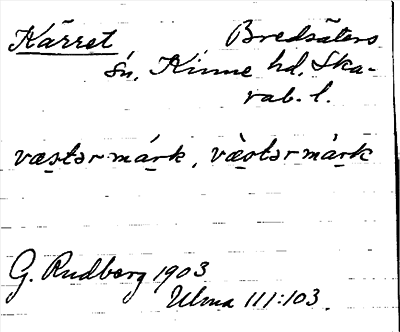 Kärret Bredsäters
sn, Kinne hd, Ska-
rab. l.
væstər márk, væ̀stər màrk
G. Rudberg 1903
Ulma 111:103.